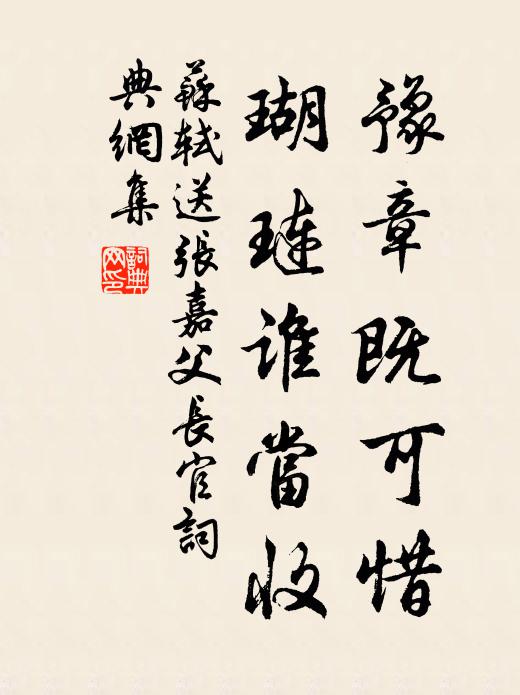 豫章既可惜
瑚璉誰當收
蘇軾送張嘉父長官詞
典網集
詞典網印